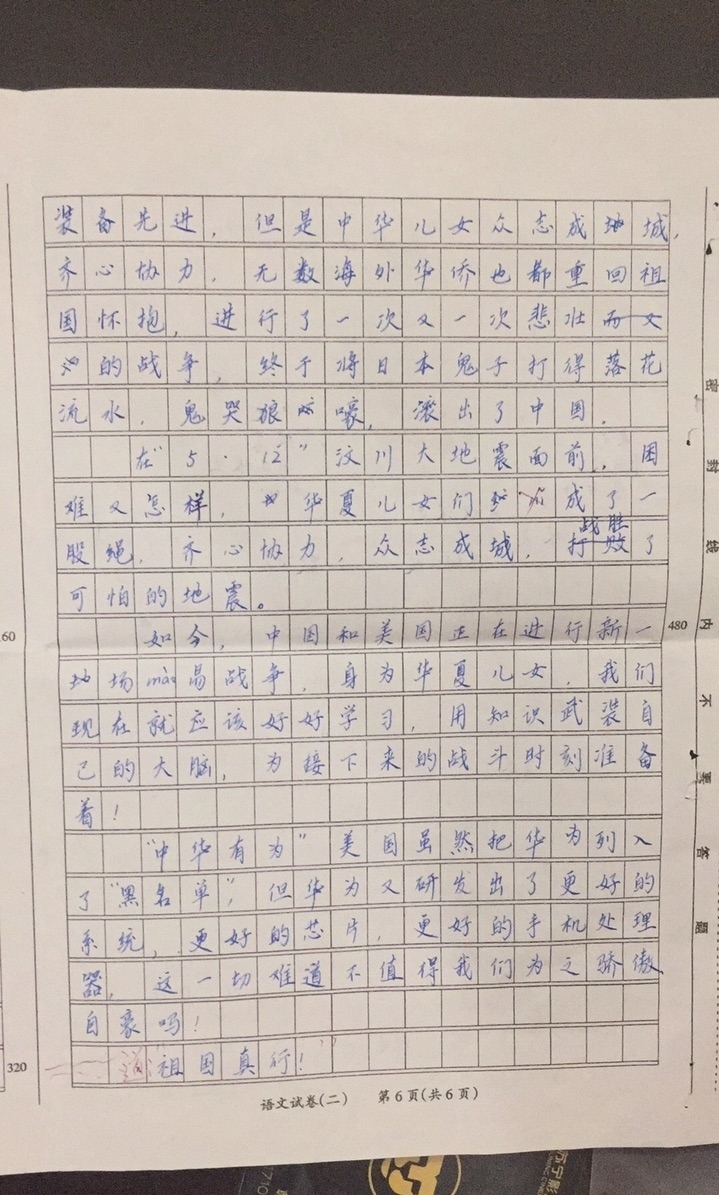 装备先进，但是中华儿女众志成城，
齐心协力，无数海外华侨也都重回祖
国怀抱，进行了一次又一次悲壮
的战争，终于将日本鬼子打得落花
流水，鬼哭狼嚎，滚出了中国。
在“5·12”汶川大地震面前，困
难又怎样，华夏儿女们成了一
战胜
股绳，齐心协力，众志成城，打败了
可怕的地震。
如今，中国和美国正在进行新一
480
60
场mào易战争，身为华夏儿女，我们
现在就应该好好学习，用知识武装自
己的大脑，为接下来的战斗时刻准备
着！
“中华有为”美国虽然把华为列入
了“黑名单”，但华为又研发出了更好的
系统，更好的芯片，更好的手机处理
器，这一切难道不值得我们为之骄傲
自豪吗！
320
“祖国真行！”
语文试卷(二) 第6页(共6页)
密封线内不要答题